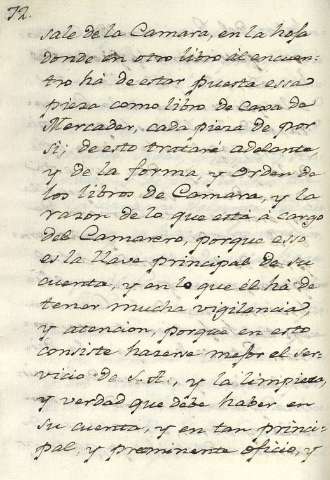 72.
sale de la Camara, en la hoja
donde en otro libro al encuen-
tro há de estar puesta essa
pieza como libro de Caxa de
Mercader, cada pieza de por
si; de esto trataré adelante,
y de la forma, y Orden de
los libros de Camara, y la
razon de lo que está á cargo
del Camarero, porque esso
es la llave principal de su
cuenta, y en lo que él há de
tener mucha vigilancia,
y atencion, porque en esto
consiste hazerse mejor el ser-
vicio de S. A., y la limpieza,
y verdad que débe haber en
su cuenta, y en tan princi-
pal, y preeminente oficio, y